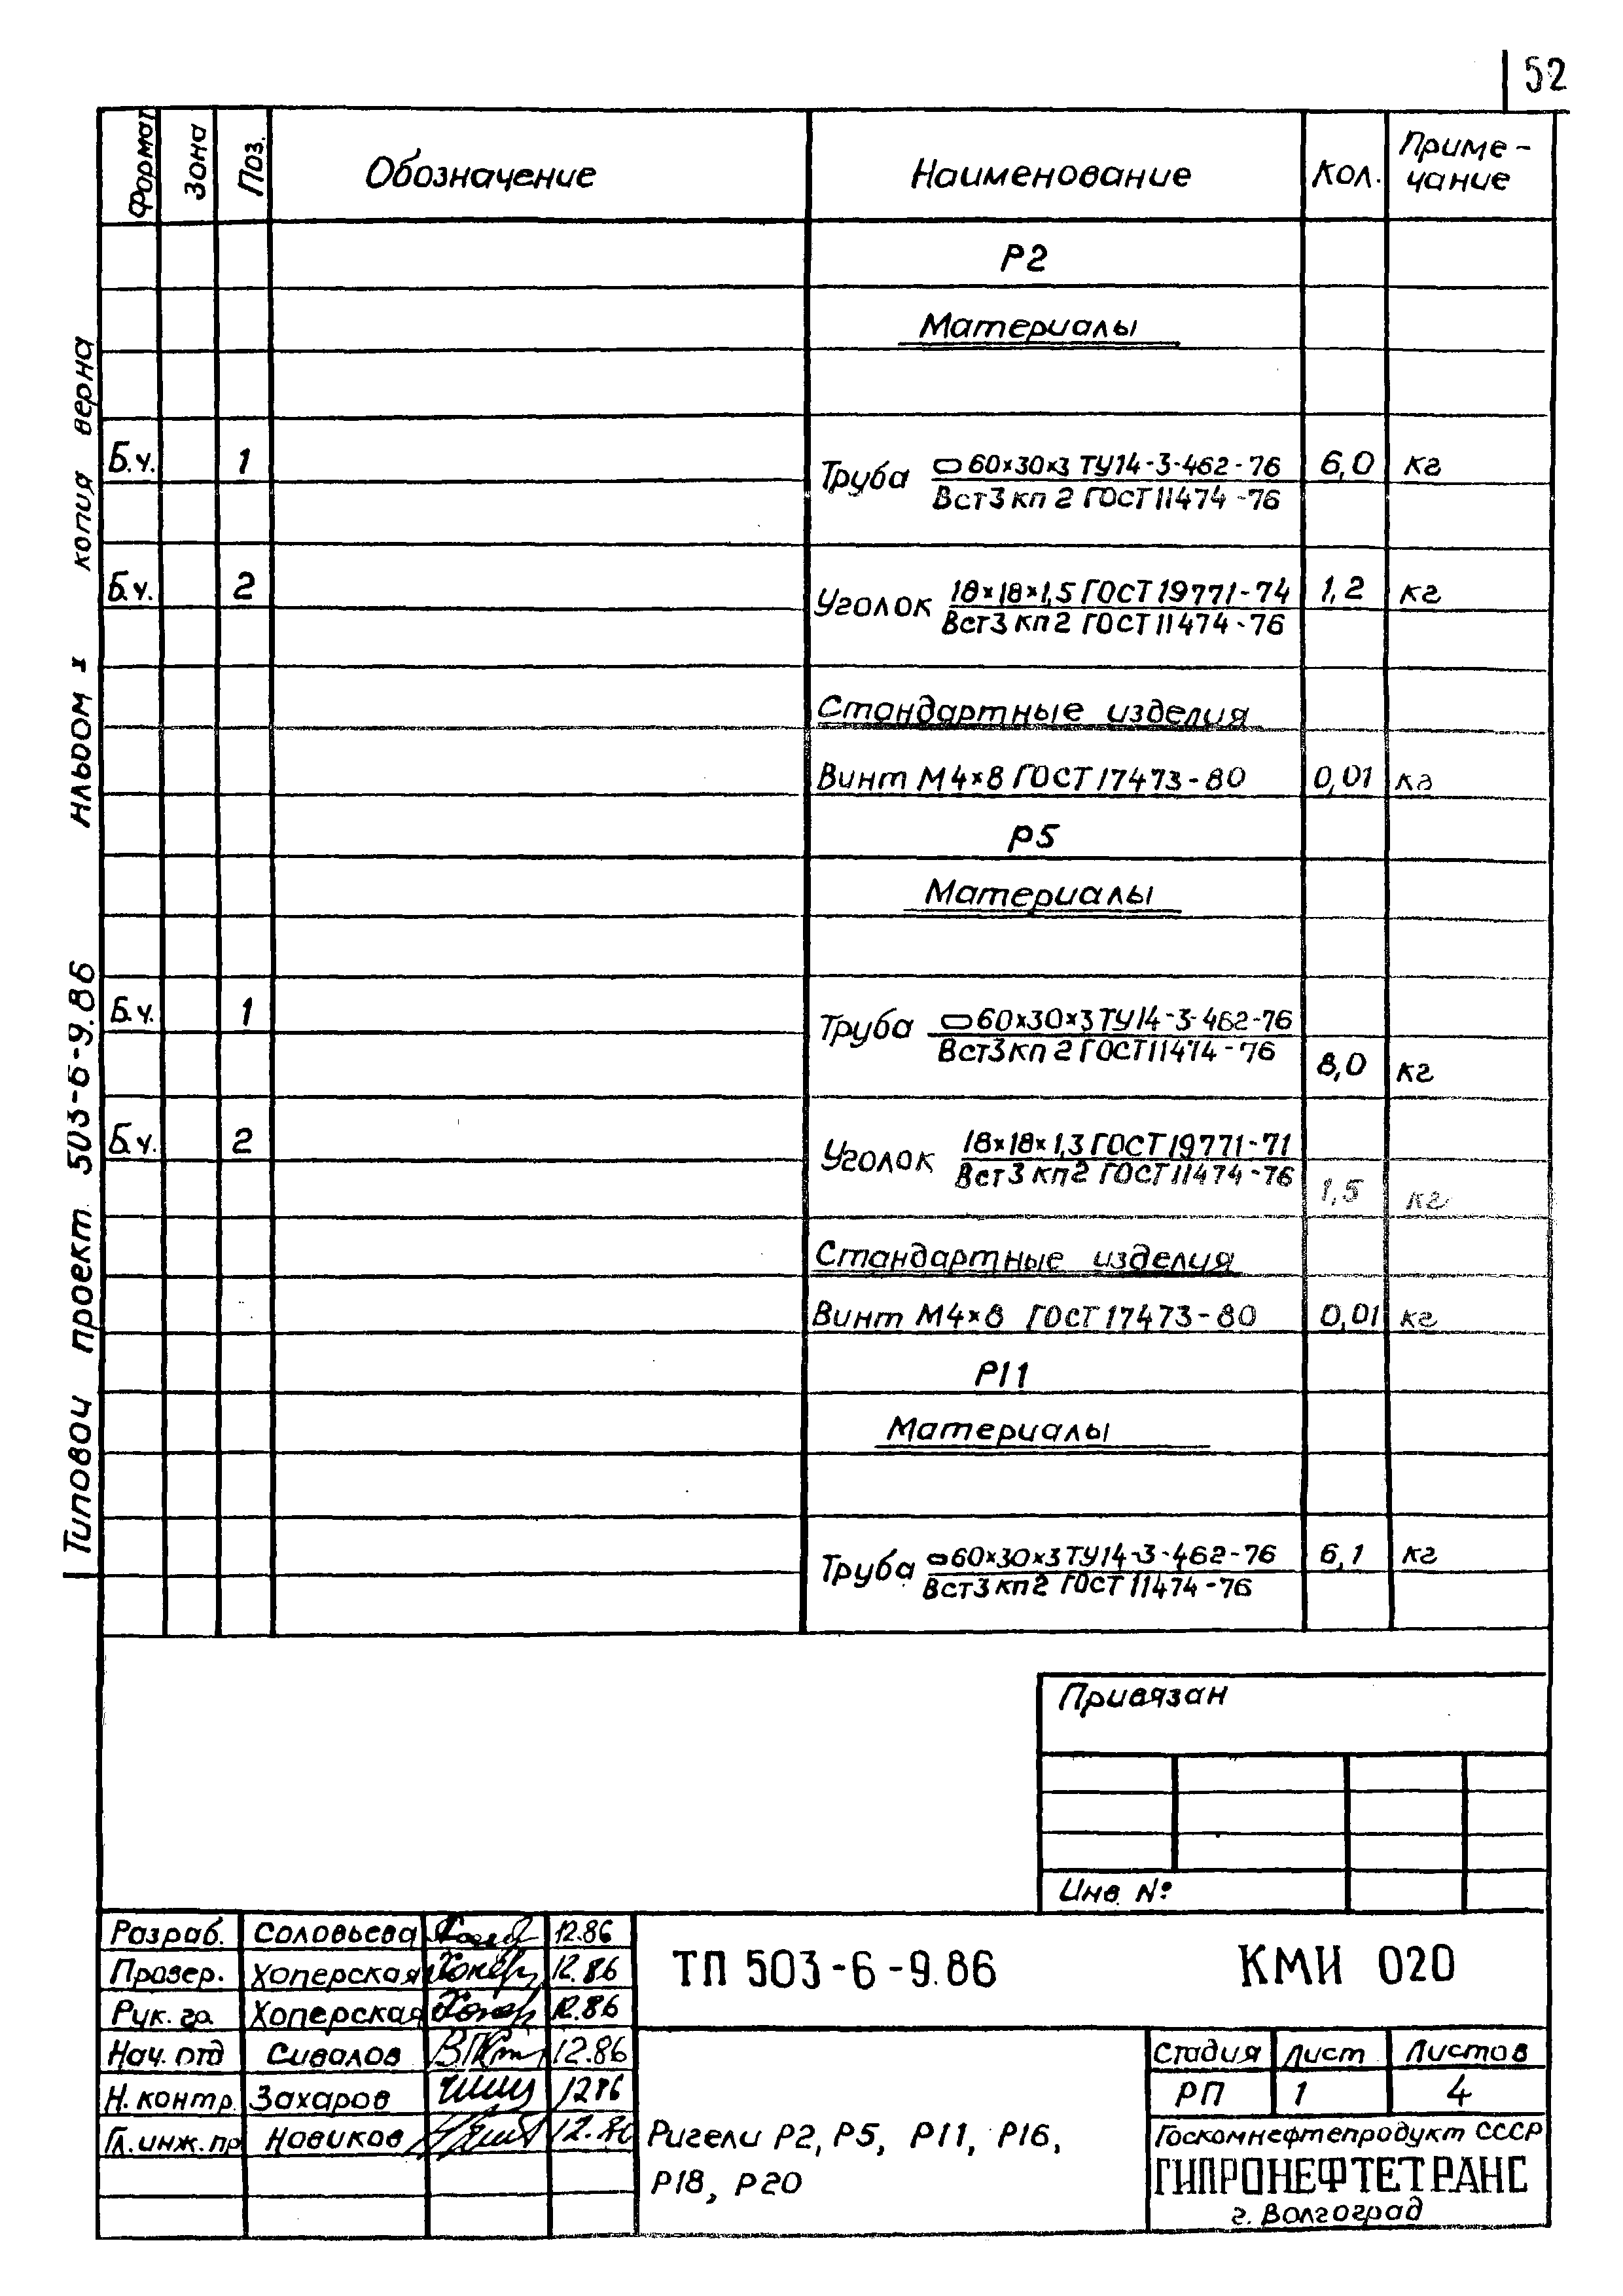 52
Формат Зона Поз. Обозначение Наименование Кол. Приме-
чание
Р2
Материалы
Б.ч. 1 Труба ▭ 60×30×3 ТУ14-3-462-76 6,0 кг
Вст3кп2 ГОСТ 11474-76
Б.ч. 2 Уголок 18×18×1,5 ГОСТ 19771-74 1,2 кг
Вст3кп2 ГОСТ 11474-76
Стандартные изделия
Винт М4×8 ГОСТ 17473-80 0,01 кг
Р5
Материалы
Б.ч. 1 Труба ▭ 60×30×3 ТУ14-3-462-76
Вст3кп2 ГОСТ 11474-76 8,0 кг
Б.ч. 2 Уголок 18×18×1,3 ГОСТ 19771-71
Вст3кп2 ГОСТ 11474-76 1,5 кг
Стандартные изделия
Винт М4×8 ГОСТ 17473-80 0,01 кг
Р11
Материалы
Труба ▭ 60×30×3 ТУ14-3-462-76 6,1 кг
Вст3кп2 ГОСТ 11474-76
Типовой проект 503-6-9.86 Альбом I копия верна
Привязан
Инв. №
Разраб. Соловьева 12.86
Провер. Хоперская 12.86
Рук. гр. Хоперская 12.86
Нач. отд Сивалов 12.86
Н. контр. Захаров 12 86
Гл. инж. пр Новиков 12.86
ТП 503-6-9.86 КМИ 020
Ригели Р2, Р5, Р11, Р16,
Р18, Р20
Стадия Лист Листов
РП 1 4
Госкомнефтепродукт СССР
ГИПРОНЕФТЕТРАНС
г. Волгоград